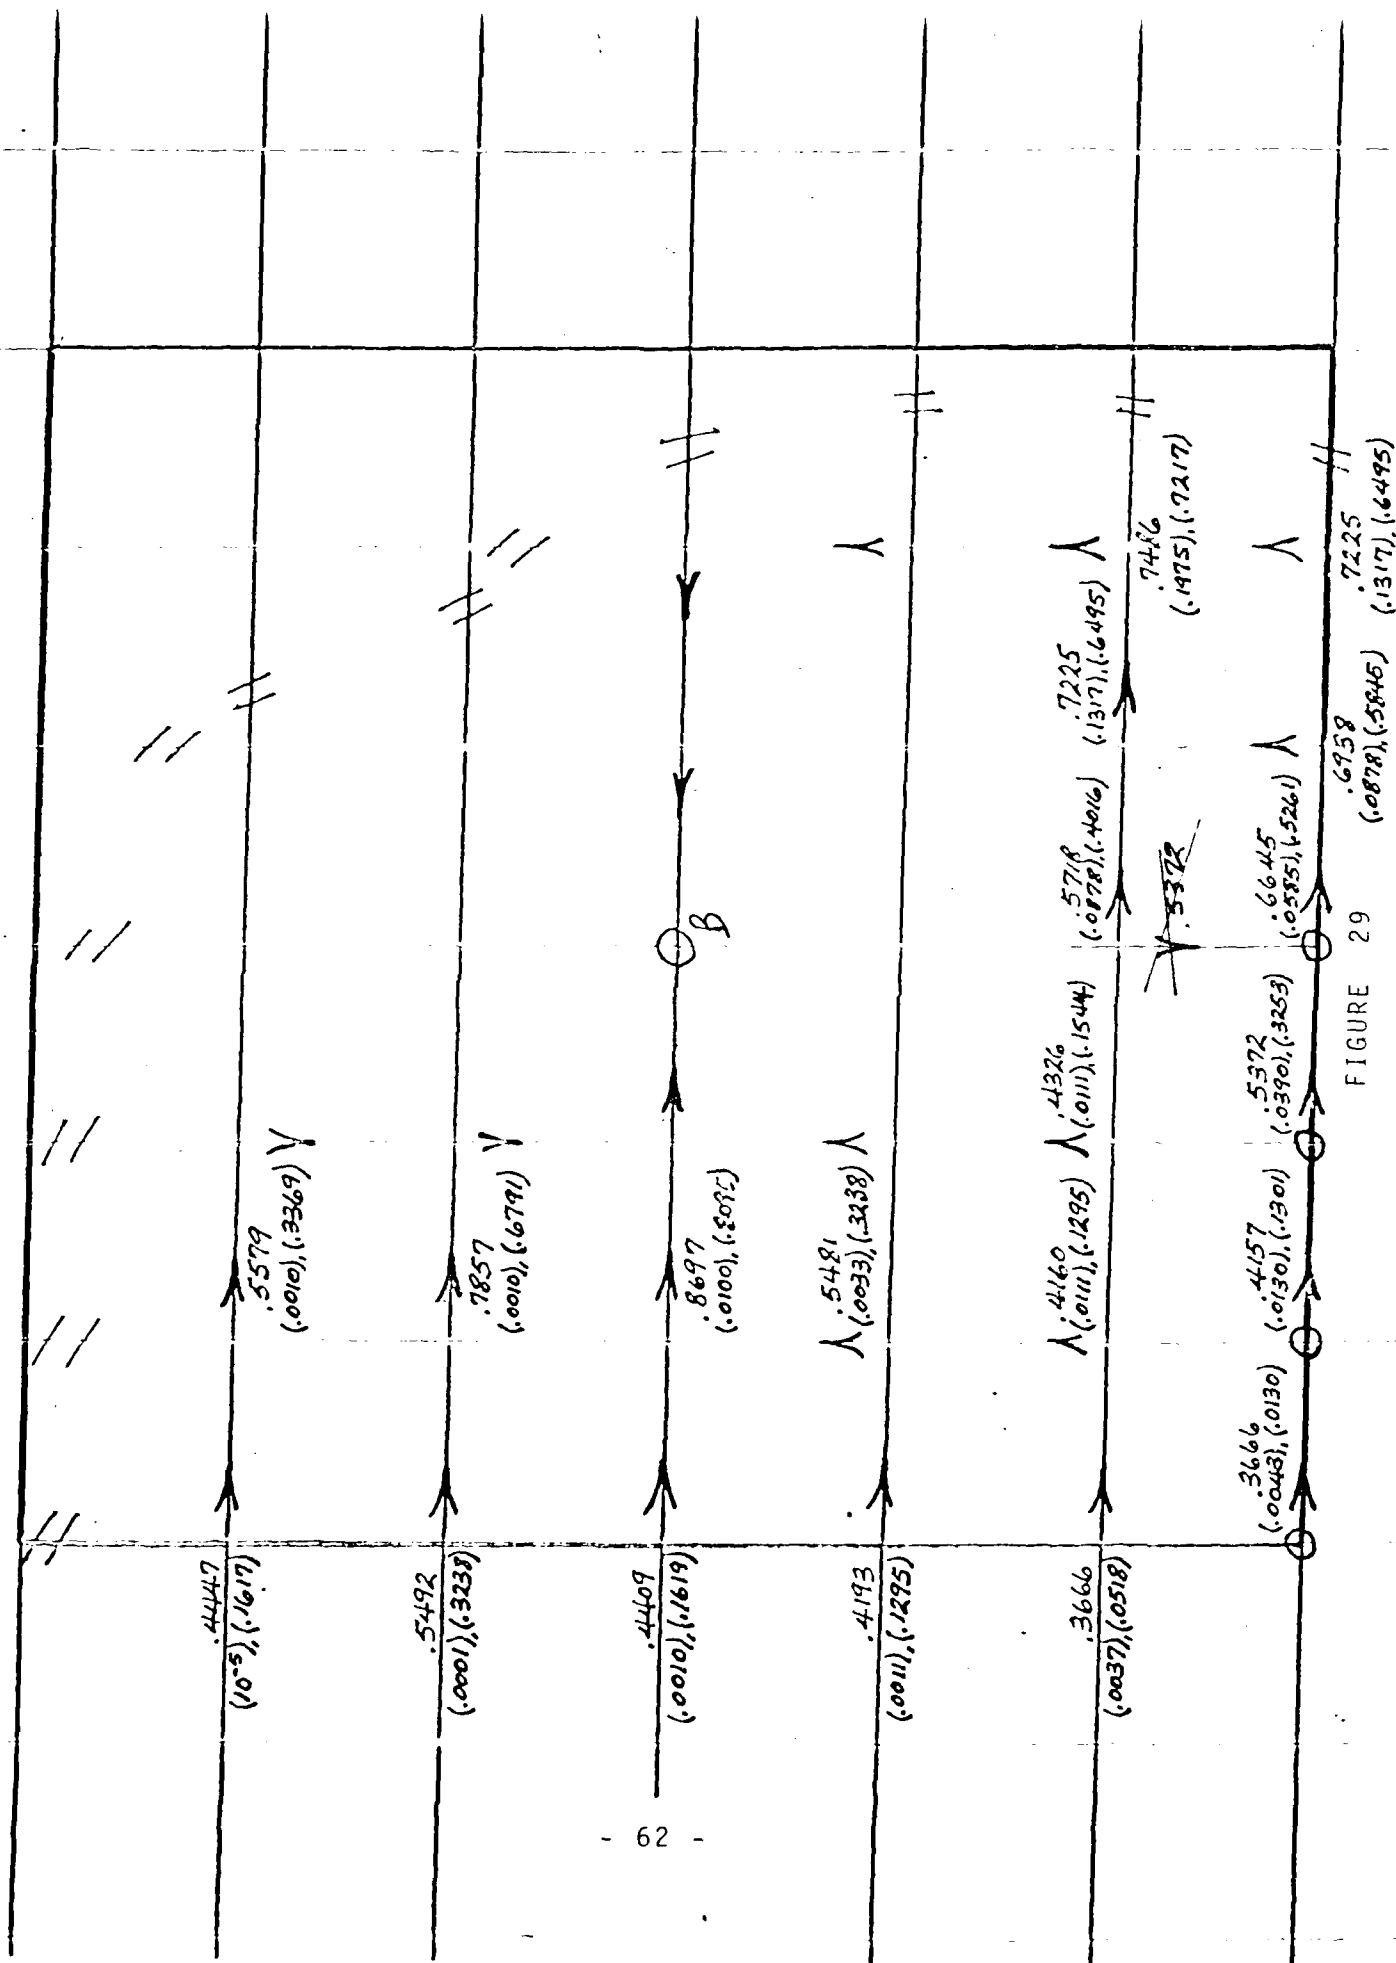 .4447
(10⁻⁵),(.1617)
.5579
(.0010),(.3369)
.5492
(.0001),(.3238)
.7857
(.0010),(.6791)
.4409
(.0010),(.1619)
.8697
(.0100),
B
.4193
(.0011),(.1295)
.5481
(.0033),(.3238)
.3666
(.0037),(.0518)
.4160
(.0111),(.1295)
.4326
(.0111),(.1544)
.5718
(.0878),(.4016)
.7225
(.1317),(.6495)
.7486
(.1975),(.7217)
.5372
.3666
(.0043),(.0130)
.4157
(.0130),(.1301)
.5372
(.0390),(.3253)
.6645
(.0585),(.5261)
.6938
(.0878),(.5845)
.7225
(.1317),(.6495)
FIGURE 29
- 62 -